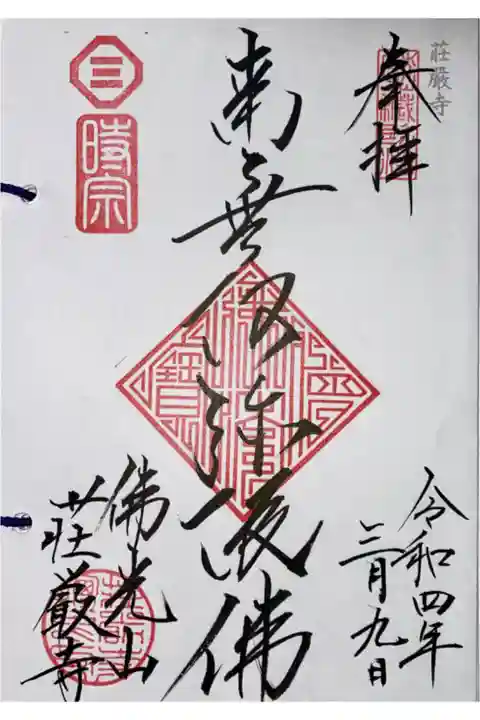 荘厳寺
奉拝
令和四年
三月九日
南無阿弥陀佛
三
時宗
佛光山
荘厳寺